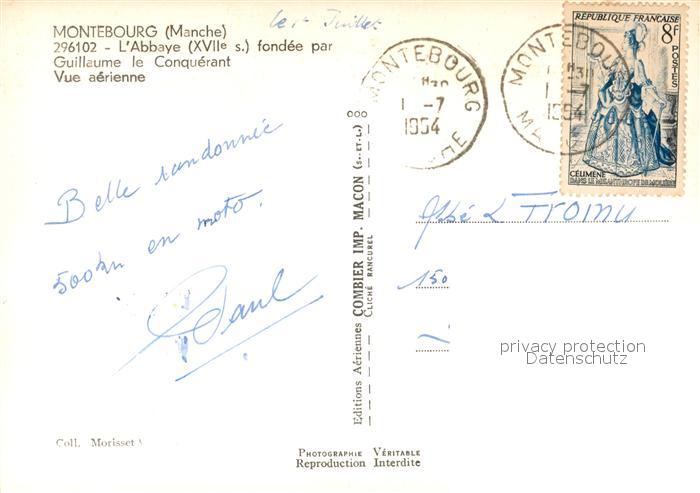 MONTEBOURG (Manche)
296102 - L'Abbaye (XVIIe s.) fondée par
Guillaume le Conquérant
Vue aérienne
le 1er Juillet
Belle randonnée
500 km en moto.
Paul
Coll. Morisset
Editions Aériennes COMBIER IMP. MACON (S.-ET-L.)
CLICHÉ RANCUREL
PHOTOGRAPHIE VÉRITABLE
Reproduction Interdite
MONTEBOURG
1 -7
1954
MONTEBOURG
1 -7
1954
RÉPUBLIQUE FRANÇAISE
8F
POSTES
CÉLIMÈNE
DANS LE MISANTHROPE DE MOLIÈRE
Abbé L
150
privacy protection
Datenschutz